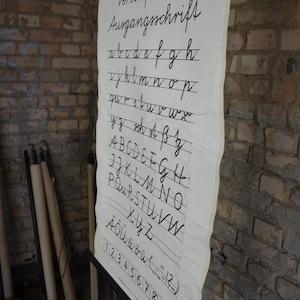 Ausgangsschrift
a b c d e f g h
i j k l m n o p
q u r s t u v w x
y z sch ß
A B C D E F G H
I J K L M N O
P Qu R S T U V W
X Y Z
Ä Ö Ü ä ö ü
1 2 3 4 5 6 7 8